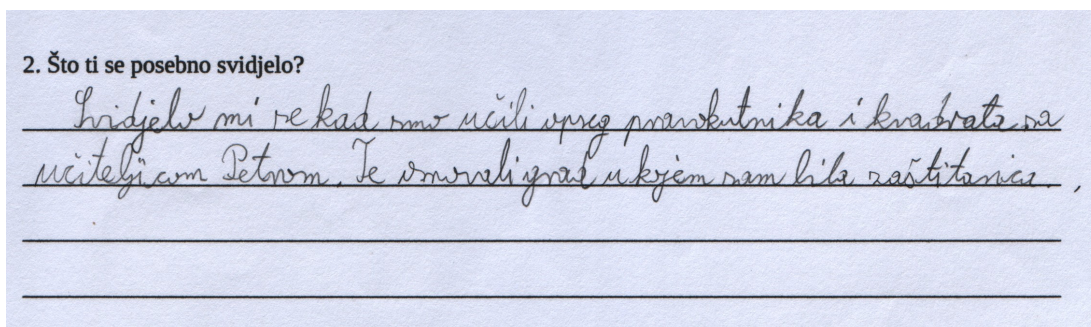 2. Što ti se posebno svidjelo?
Svidjelo mi se kad smo učili opseg pravokutnika i kvadrata sa
učiteljicom Petrom. Te osnovali grad u kojem sam bila zaštitarica.